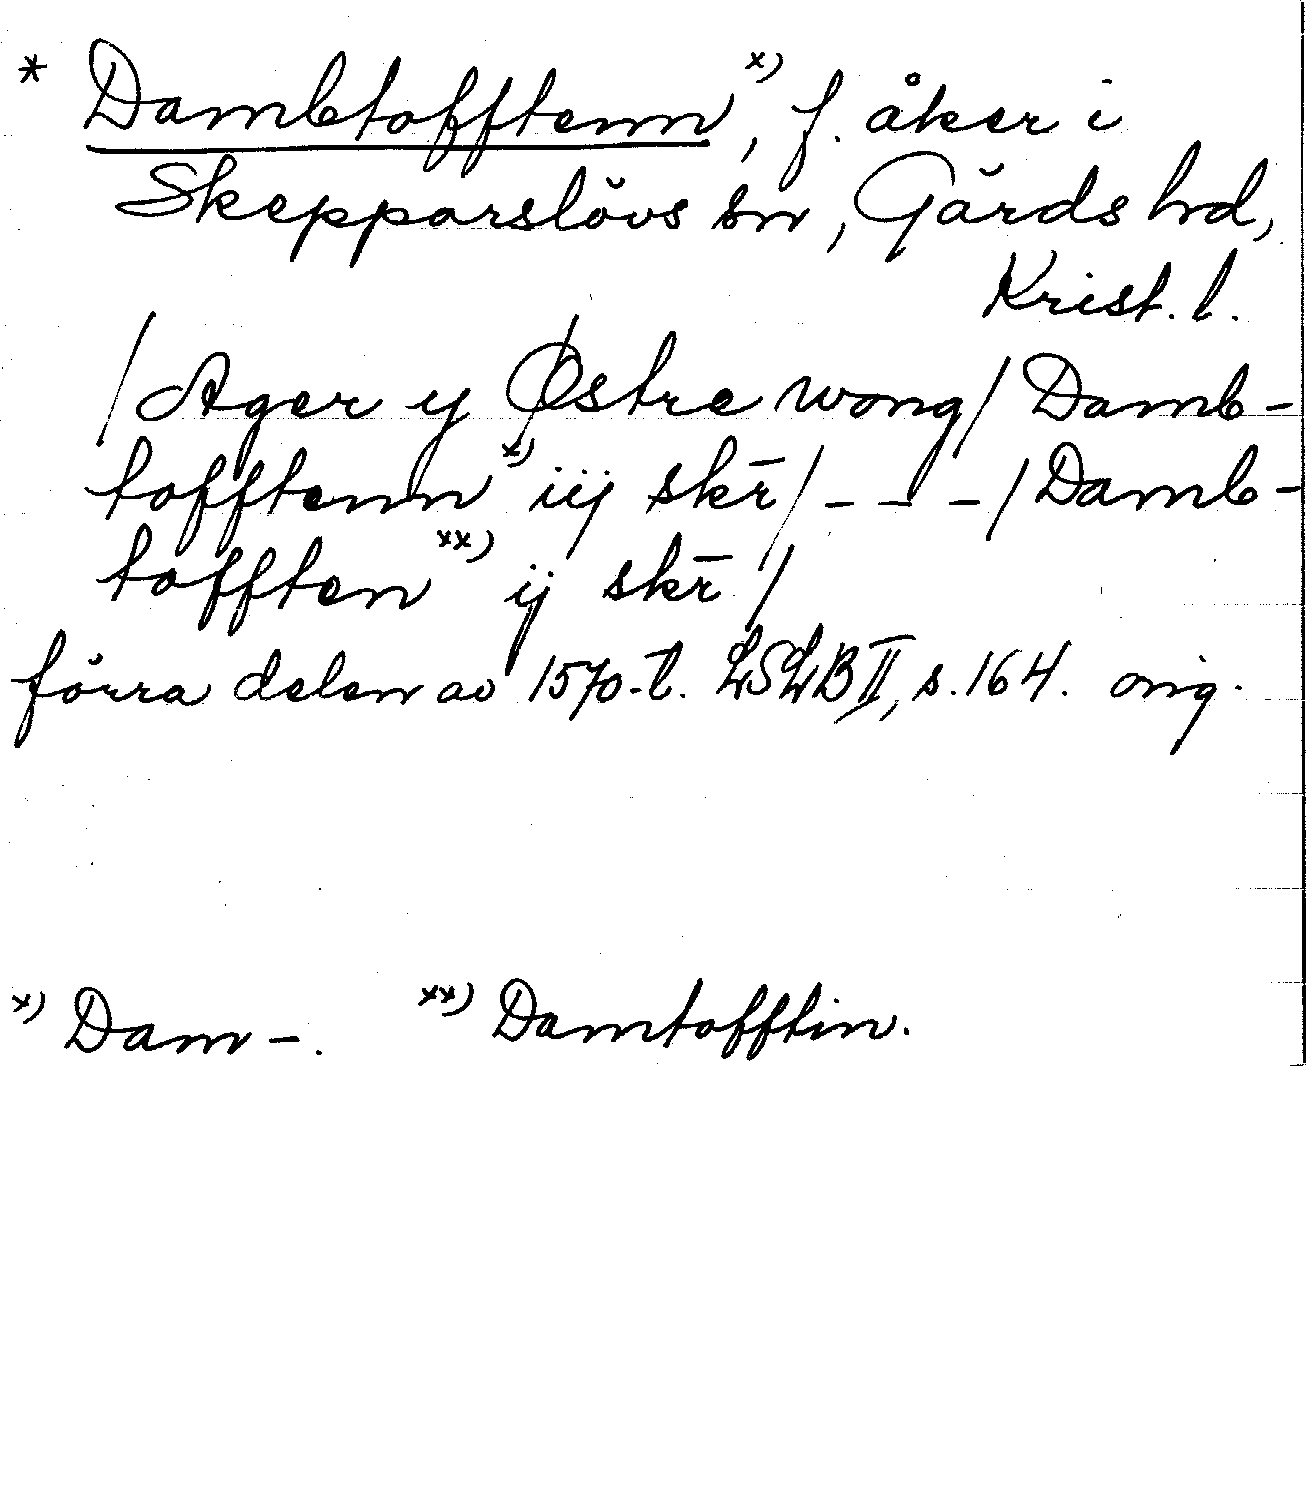 * Dambtofftenn x), f. åker i
Skepparslövs sn, Gärds hd,
Krist. l.
/Ager y Østre wong/ Damb-
tofftenn x) iij skr̄/ - - - /Damb-
tofften xx) ij skr̄ /
förra delen av 1570-t. LSLB II, s. 164. orig.
x) Dam-. xx) Damtofftin.